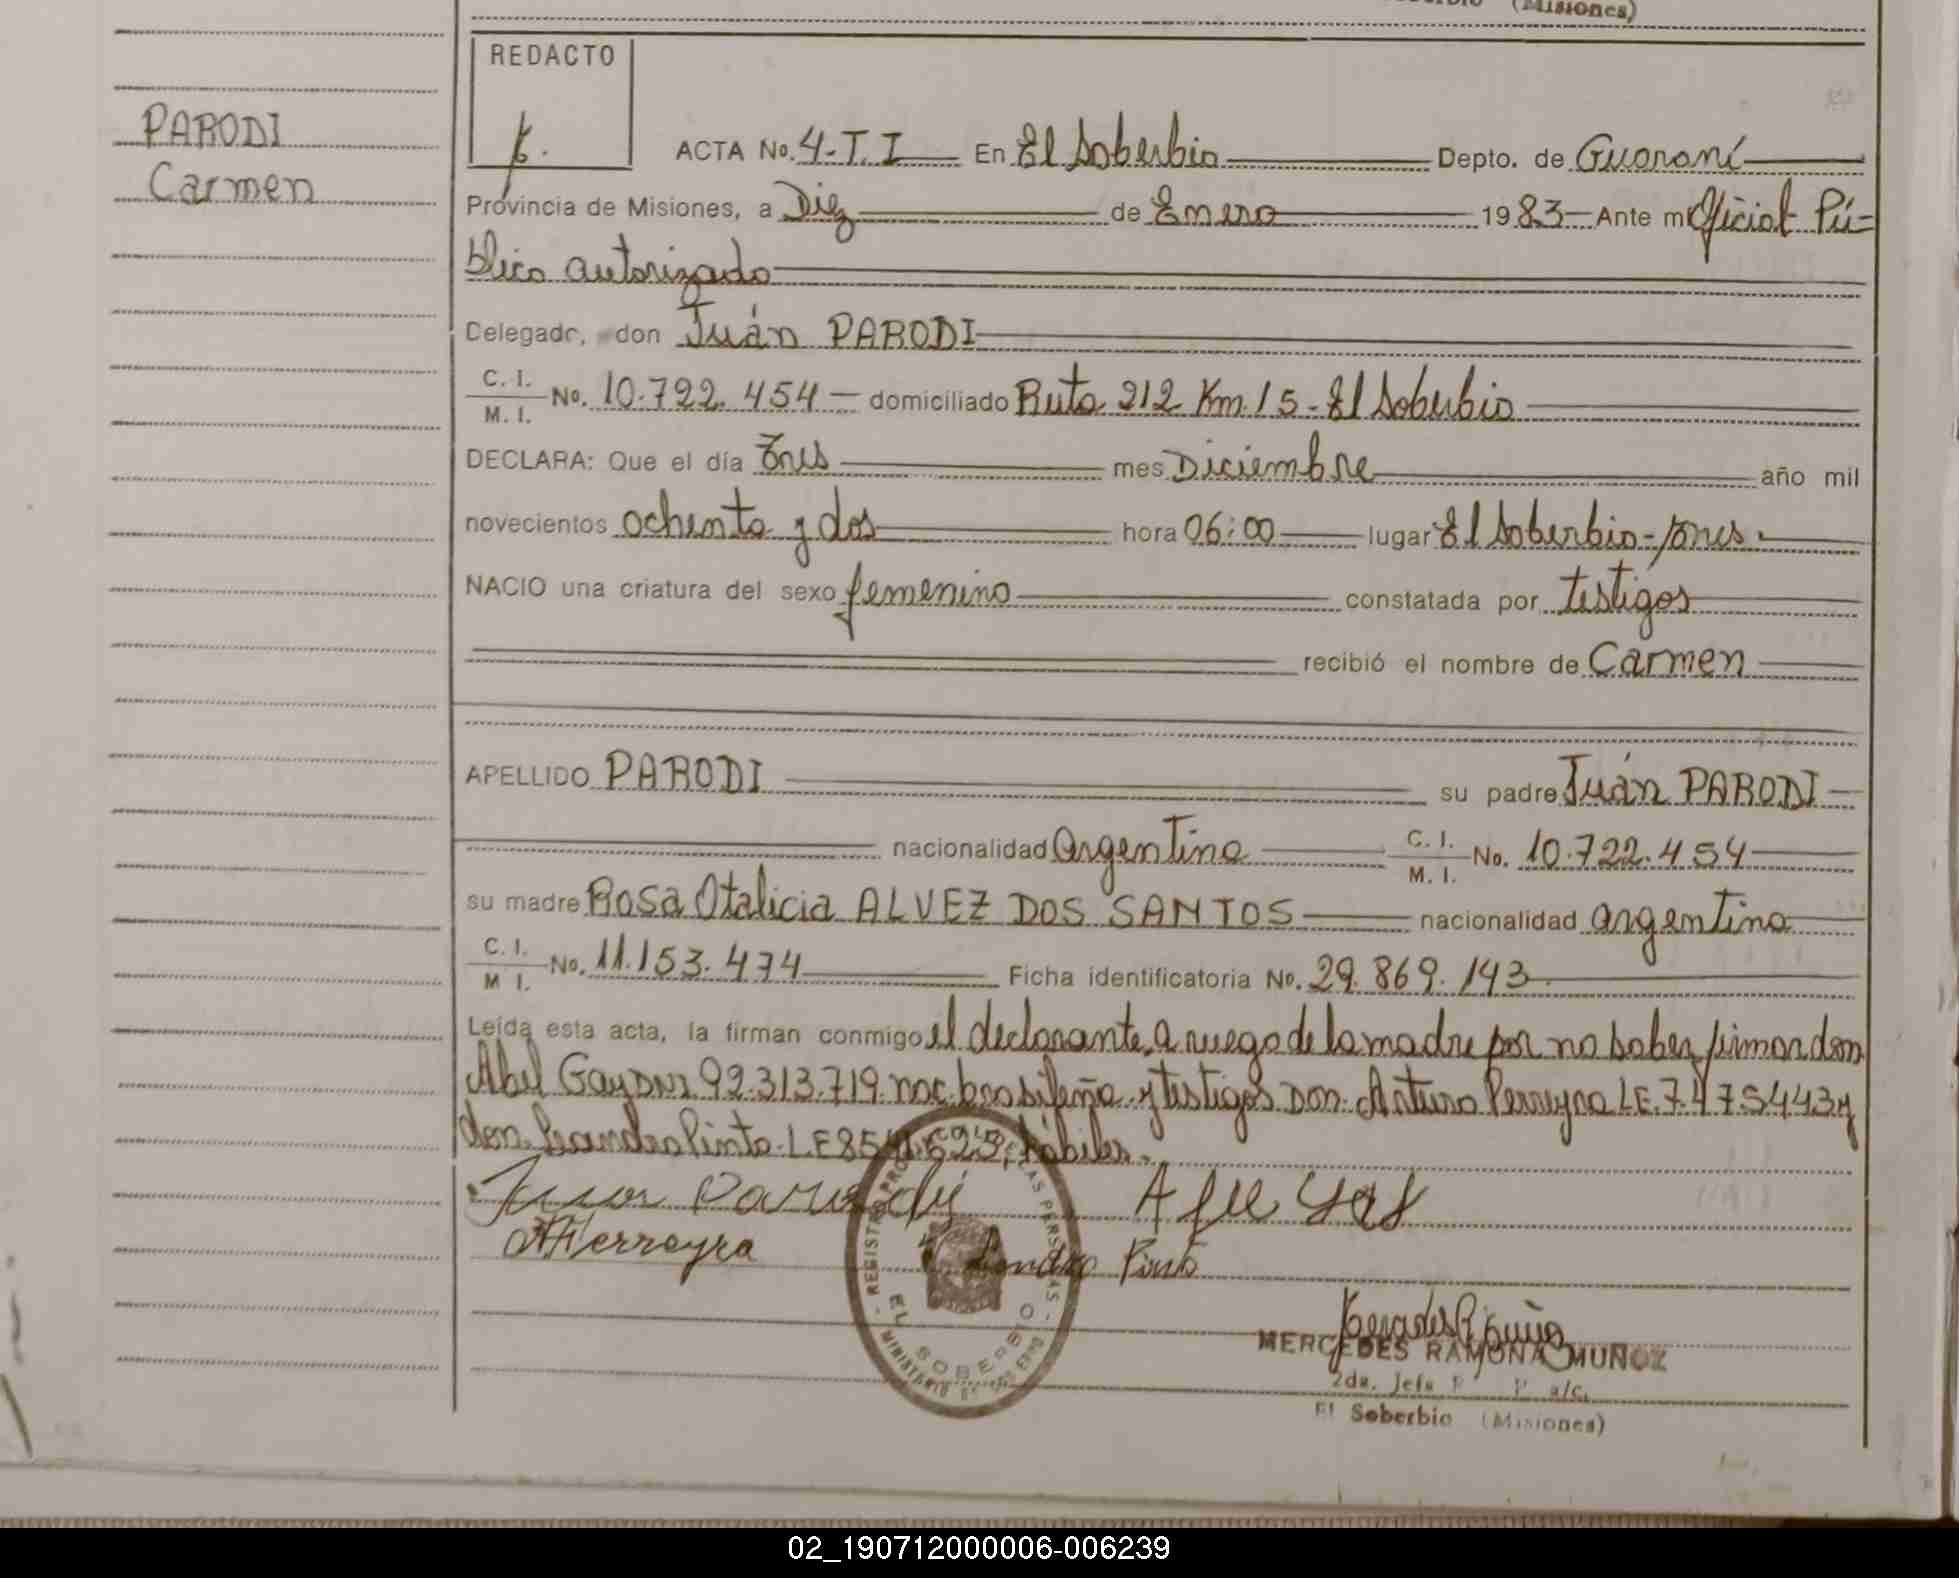 (Misiones)
REDACTO
PARODI
Carmen
ACTA No. 4-T.I En El Soberbio Depto. de Guaraní
Provincia de Misiones, a Diez de Enero 1983 Ante mí Oficial Pú=
blico autorizado
Delegado, don Juán PARODI
C. I.
M. I. No. 10.722.454 domiciliado Ruta 212 Km 15-El Soberbio
DECLARA: Que el día Tres mes Diciembre año mil
novecientos ochenta y dos hora 06:00 lugar El Soberbio-
NACIO una criatura del sexo femenino constatada por testigos
recibió el nombre de Carmen
APELLIDO PARODI su padre Juán PARODI
nacionalidad Argentina C. I.
M. I. No. 10.722.454
su madre Rosa Otalicia ALVEZ DOS SANTOS nacionalidad argentina
C. I.
M I. No. 11.153.474 Ficha identificatoria No. 29.869.143
Leída esta acta, la firman conmigo el declarante, a ruego de la madre por no saber firmar don
Abel Gay DNI 92.313.719 nac. brasileña y testigos Don Arturo Ferreyra LE.7.475443 y
don Leandro Pinto L.E 85 623, hábiles.
Juan Parodi
AFerreyra
Leandro Pinto
REGISTRO PROV. DE LAS PERSONAS
EL SOBERBIO
MINISTERIO DE GOBIERNO
MERCEDES RAMONA MUÑOZ
2da. Jefa a/c.
El Soberbio (Misiones)
02_190712000006-006239